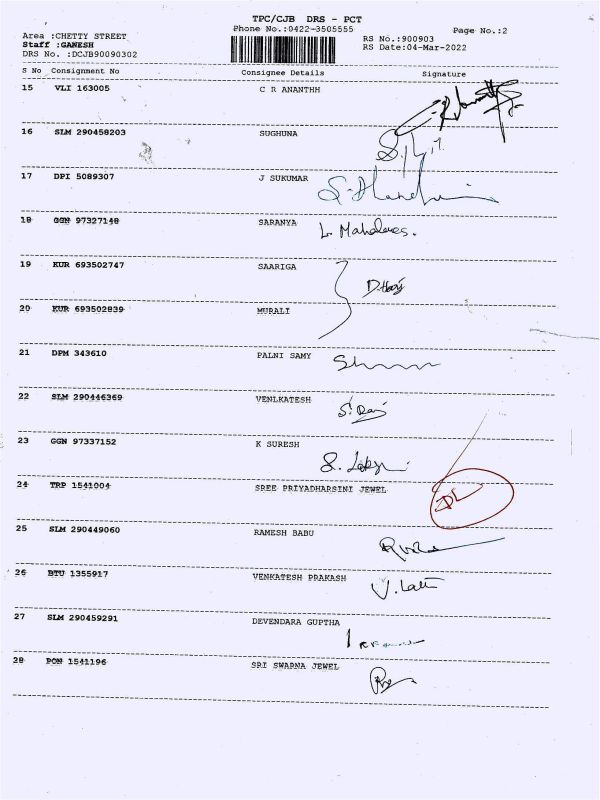 TPC/CJB DRS - PCT
Phone No.:0422-3505555
Page No.:2
Area :CHETTY STREET
RS No.:900903
Staff :GANESH
RS Date:04-Mar-2022
DRS No. :DCJB90090302
S No Consignment No Consignee Details Signature
15 VLI 163005 C R ANANTHH
16 SLM 290458203 SUGHUNA
17 DPI 5089307 J SUKUMAR
18 GGN 97327148 SARANYA
19 KUR 693502747 SAARIGA
20 KUR 693502839 MURALI
21 DPM 343610 PALNI SAMY
22 SLM 290446369 VENLKATESH
23 GGN 97337152 K SURESH
24 TRP 1541004 SREE PRIYADHARSINI JEWEL
25 SLM 290449060 RAMESH BABU
26 BTU 1355917 VENKATESH PRAKASH
27 SLM 290459291 DEVENDARA GUPTHA
28 PON 1541196 SRI SWARNA JEWEL